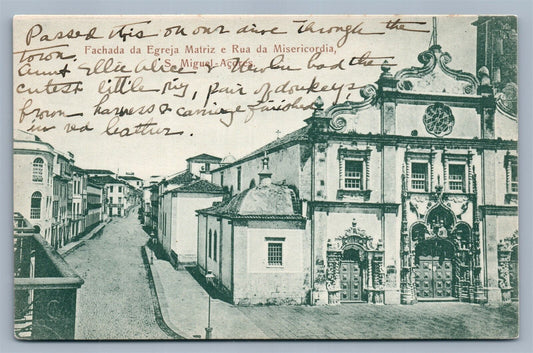 Passed this on our drive through the
town.
Fachada da Egreja Matriz e Rua da Misericordia,
S. Miguel-Açores
Aunt Ellie Alice & had the
cutest little rig, pair of donkeys
brown harness & carriage finished
in red leather.